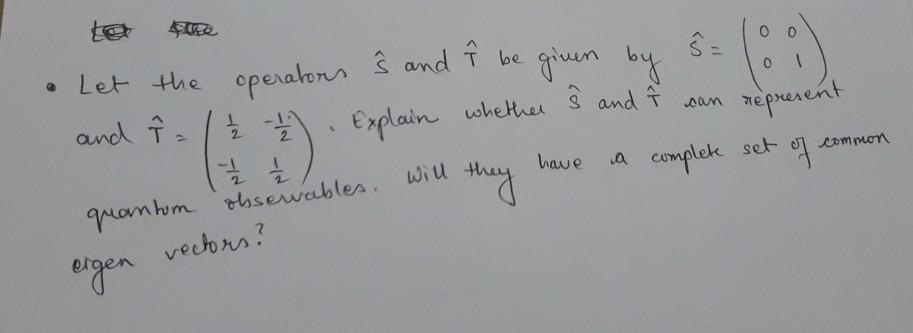 • Let the operators Ŝ and T̂ be given by Ŝ = (0 0; 0 1)
and T̂ = (1/2 -1/2; -1/2 1/2). Explain whether Ŝ and T̂ can represent
quantum observables. Will they have a complete set of common
eigen vectors?